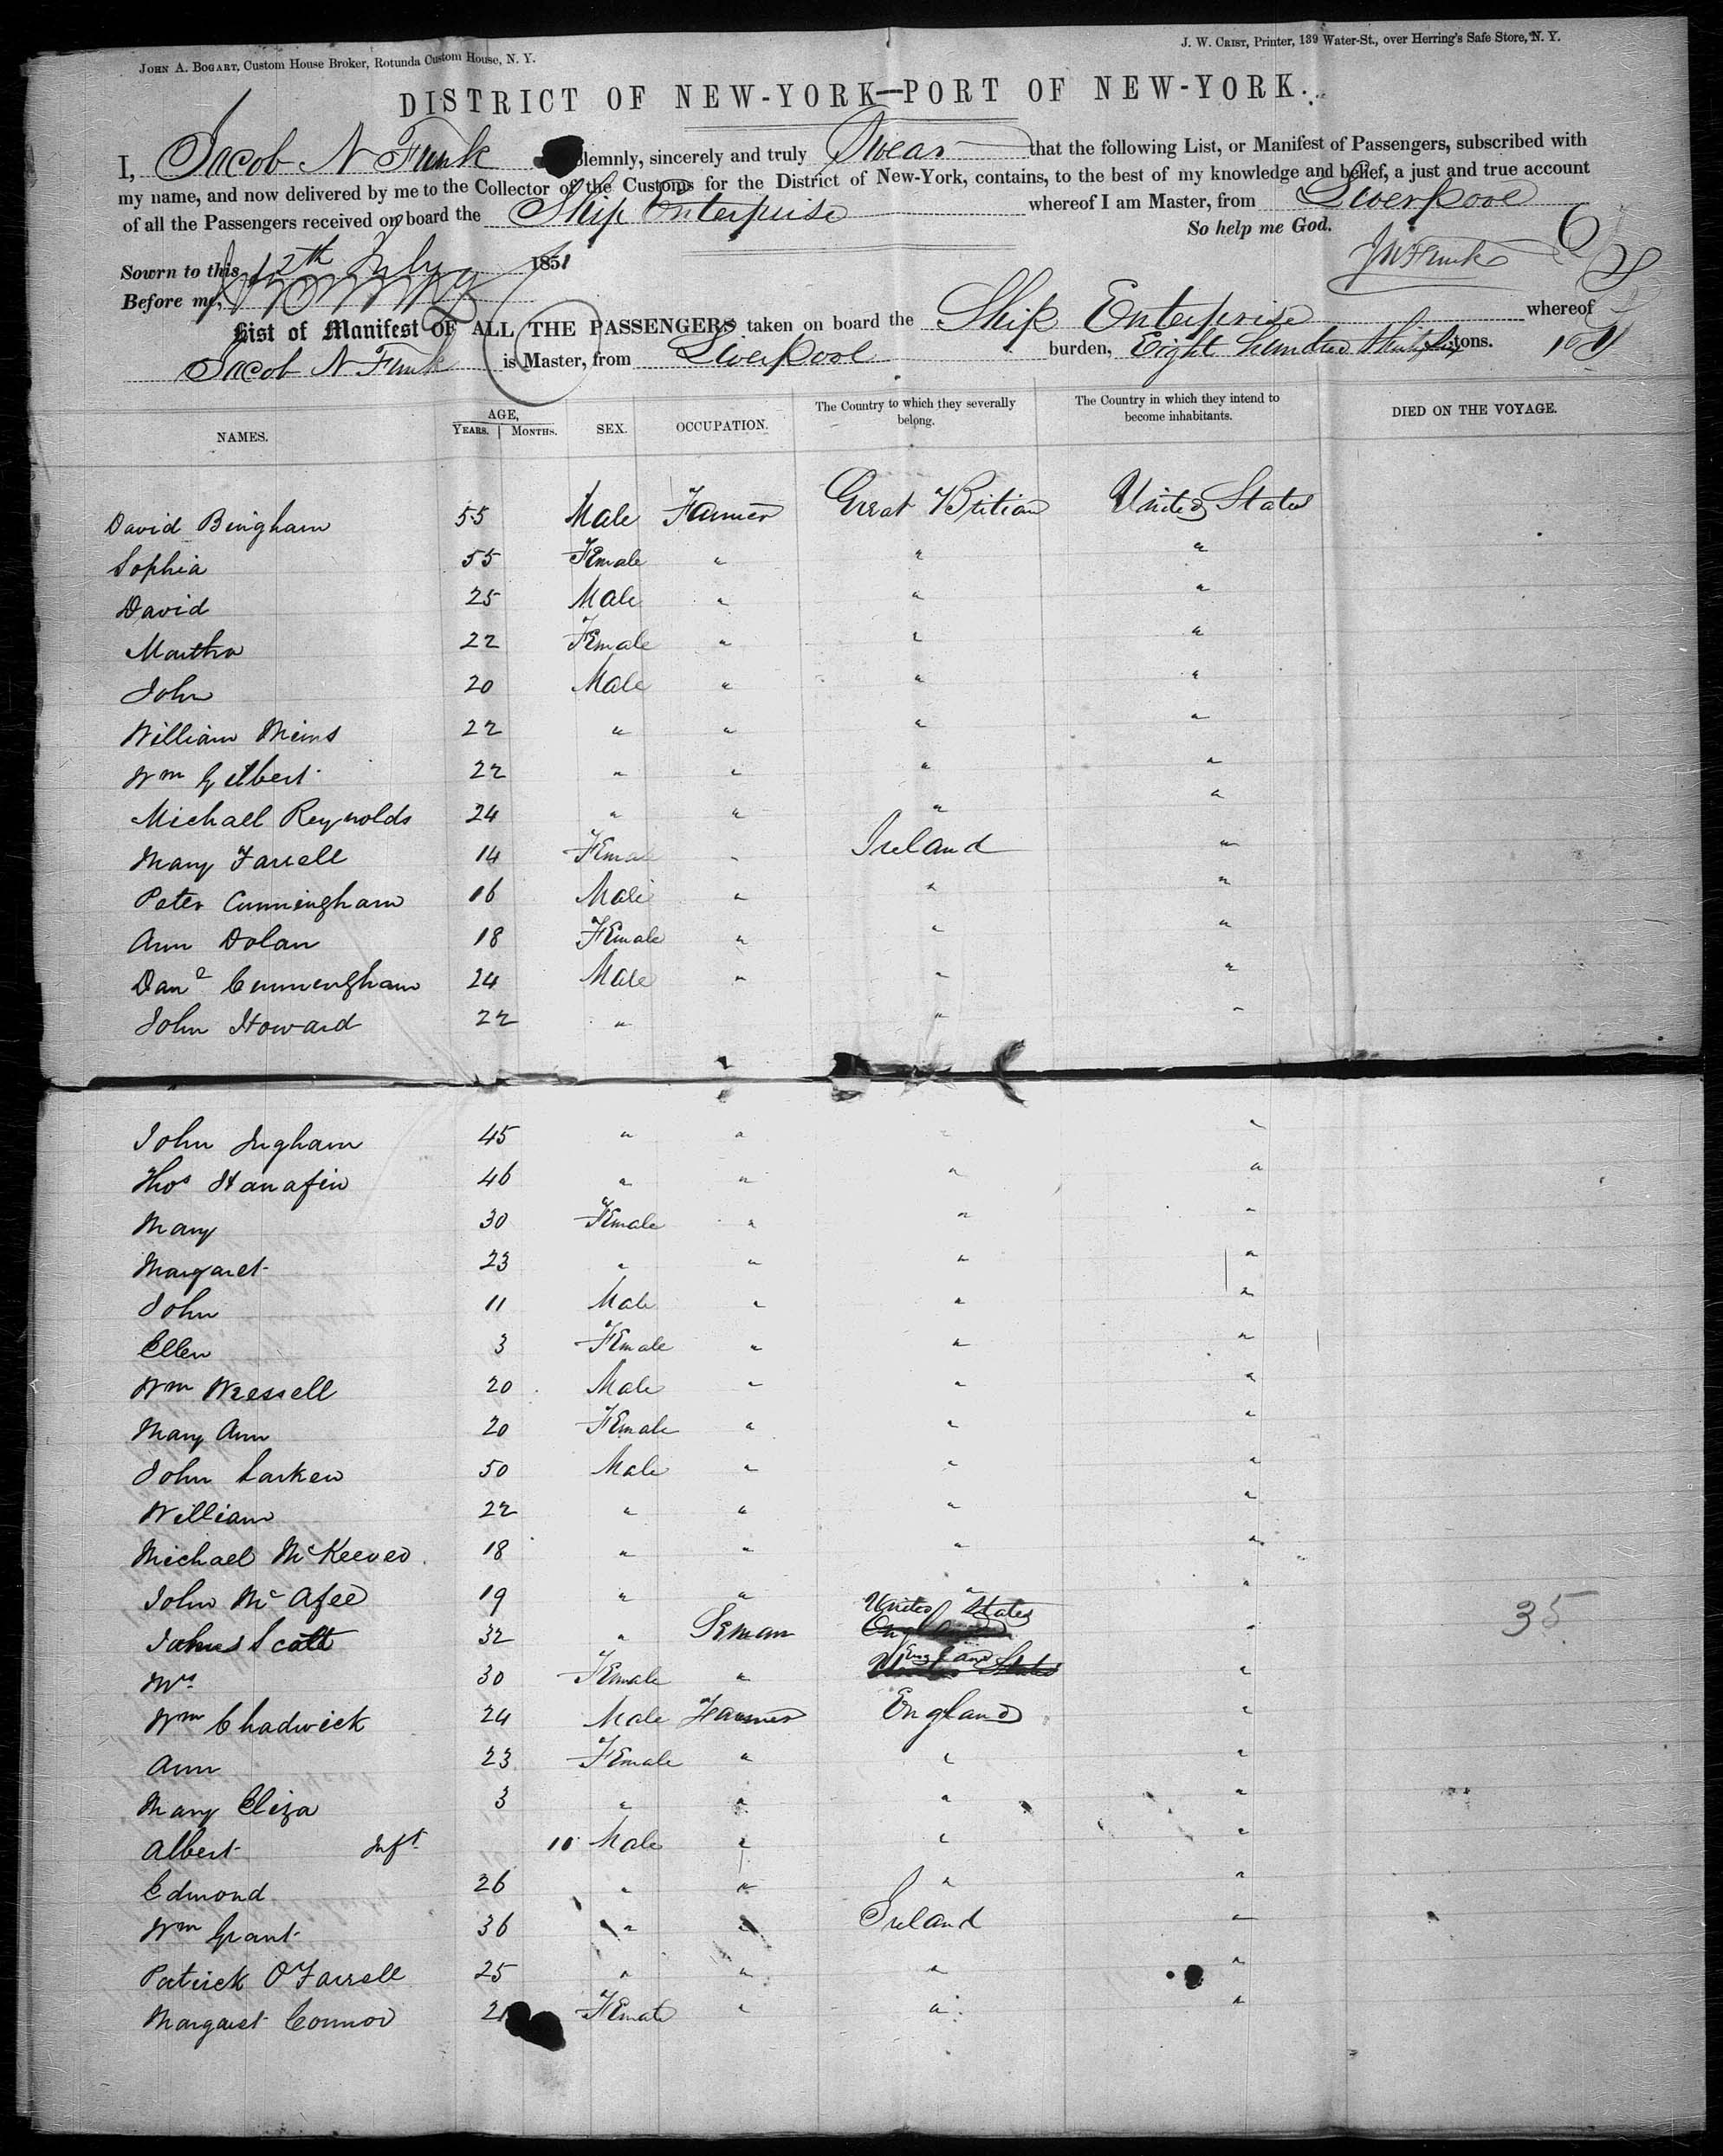 JOHN A. BOGART, Custom House Broker, Rotunda Custom House, N. Y.
J. W. CRIST, Printer, 139 Water-St., over Herring's Safe Store, N. Y.
DISTRICT OF NEW-YORK—PORT OF NEW-YORK.
I, Jacob N Funk olemnly, sincerely and truly Swear that the following List, or Manifest of Passengers, subscribed with
my name, and now delivered by me to the Collector of the Customs for the District of New-York, contains, to the best of my knowledge and belief, a just and true account
of all the Passengers received on board the Ship Enterprise whereof I am Master, from Liverpool
So help me God.
Sowrn to this 12th July 1851
J N Funk
Before me,
List of Manifest OF ALL THE PASSENGERS taken on board the Ship Enterprise whereof
Jacob N Funk is Master, from Liverpool burden, Eight hundred thirty six tons.
NAMES. AGE, YEARS. MONTHS. SEX. OCCUPATION. The Country to which they severally belong. The Country in which they intend to become inhabitants. DIED ON THE VOYAGE.
David Bingham 55 Male Farmer Great Britian United States
Sophia 55 Female " " "
David 25 Male " " "
Martha 22 Female " " "
John 20 Male " " "
William Mims 22 " " " "
Wm Gilbert 22 " " " "
Michael Reynolds 24 " " " "
Mary Farrell 14 Female " Ireland "
Peter Cunningham 16 Male " " "
Ann Dolan 18 Female " " "
Danl Cunningham 24 Male " " "
John Howard 22 " " "
John Ingham 45 " " " "
Thos Hanafin 46 " " " "
Mary 30 Female " " "
Margaret 23 " " " "
John 11 Male " " "
Ellen 3 Female " " "
Wm Wressell 20 Male " " "
Mary Ann 20 Female " " "
John Larken 50 Male " " "
William 22 " " " "
Michael McKeever 18 " " " "
John McAfee 19 " " " "
James Scott 32 " Seman United States England "
35
Mrs 30 Female " England United States "
Wm Chadwick 24 Male Farmer England "
Ann 23 Female " " "
Mary Eliza 3 " " " "
Albert Inft 10 Male " " "
Edmond 26 " " " "
Wm Grant 36 " " Ireland "
Patrick O'Farrell 25 " " " "
Margaret Connor 2 Female " " "